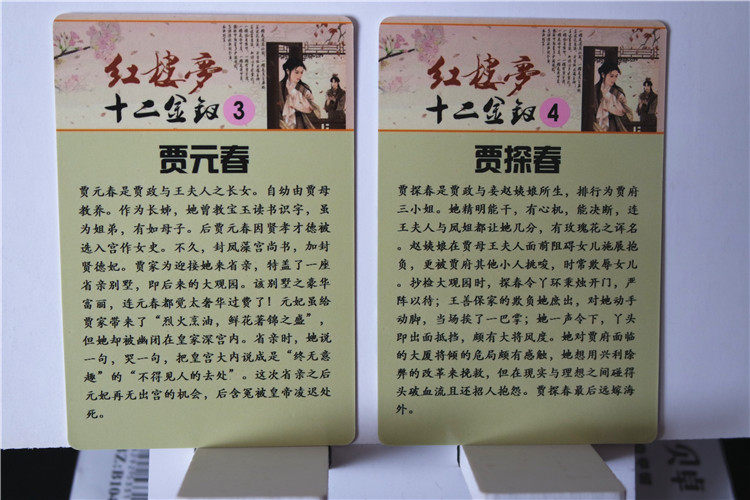 红楼梦
十二金钗 3
贾元春
贾元春是贾政与王夫人之长女。自幼由贾母
教养。作为长姊，她曾教宝玉读书识字，虽
为姐弟，有如母子。后贾元春因贤孝才德被
选入宫作女史。不久，封凤藻宫尚书，加封
贤德妃。贾家为迎接她来省亲，特盖了一座
省亲别墅，即后来的大观园。该别墅之豪华
富丽，连元春都觉太奢华过费了！元妃虽给
贾家带来了“烈火烹油，鲜花著锦之盛”，
但她却被幽闭在皇家深宫内。省亲时，她说
一句，哭一句，把皇宫大内说成是“终无意
趣”的“不得见人的去处”。这次省亲之后
元妃再无出宫的机会，后含冤被皇帝凌迟处
死。
红楼梦
十二金钗 4
贾探春
贾探春是贾政与妾赵姨娘所生，排行为贾府
三小姐。她精明能干，有心机，能决断，连
王夫人与凤姐都让她几分，有玫瑰花之诨名
。赵姨娘在贾母王夫人面前阻碍女儿施展抱
负，更被贾府其他小人挑唆，时常欺辱女儿
。抄检大观园时，探春令丫环秉烛开门，严
阵以待；王善保家的欺负她庶出，对她动手
动脚，当场挨了一巴掌；她一声令下，丫头
即出面抵挡，颇有大将风度。她对贾府面临
的大厦将倾的危局颇有感触，她想用兴利除
弊的改革来挽救，但在现实与理想之间碰得
头破血流且还招人抱怨。贾探春最后远嫁海
外。